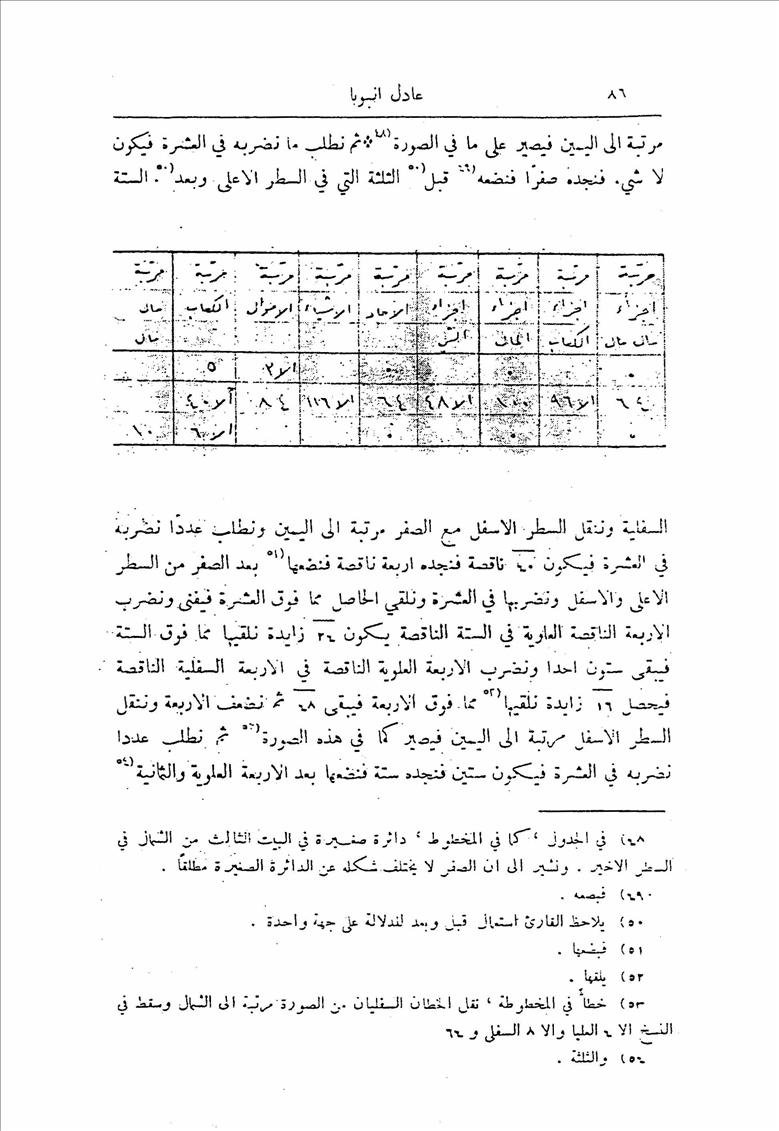 ٨٦ عادل انبوبا
مرتبة الى اليمين فيصير على ما في الصورة(٤٨ * ثم نطلب ما نضربه في العشرة فيكون
لا شي. فنجده صفرًا فنضعه(٤٩ قبل(٥٠ الثلثة التي في السطر الاعلى وبعد(٥٠. الستة
مرتبة مرتبة مرتبة مرتبة مرتبة مرتبة مرتبة مرتبة مرتبة
اجزاء اجزاء اجزاء اجزاء الاحاد الاشياء الاموال الكعاب مال
مال مال الكعاب المال الشي مال
٠ ٠ ٠ الا٣ ٥
٦٤ الا٩٦ الا٤٨ ٦٤ الا١١٦ ٨٤ الا٤٠
٠ ٠ ٠ الا٦ ١٠
السفلية وننقل السطر الاسفل مع الصفر مرتبة الى اليمين ونطلب عددًا نضربه
في العشرة فيكون ٤٠ ناقصة فنجده اربعة ناقصة فنضعها(٥١ بعد الصفر من السطر
الاعلى والاسفل ونضربها في العشرة ونلقي الحاصل مما فوق العشرة فيفنى ونضرب
الاربعة الناقصة العلوية في الستة الناقصة يكون ٢٤ زايدة نلقيها مما فوق الستة
فيبقى ستون احدا ونضرب الاربعة العلوية الناقصة في الاربعة السفلية الناقصة
فيحصل ١٦ زايدة نلقيها(٥٢ مما فوق الاربعة فيبقى ٤٨ ثم نضعف الاربعة وننقل
السطر الاسفل مرتبة الى اليمين فيصير كما في هذه الصورة(٥٣ ثم نطلب عددا
نضربه في العشرة فيكون ستين فنجده ستة فنضعها بعد الاربعة العلوية والثمانية(٥٤
٤٨) في الجدول ، كما في المخطوط ، دائرة صغيرة في البيت الثالث من الشمال في
السطر الاخير . ونشير الى ان الصفر لا يختلف شكله عن الدائرة الصغيرة مطلقًا .
٤٩) فيصعه .
٥٠) يلاحظ القارئ استعمال قبل وبعد للدلالة على جهة واحدة .
٥١) فيضعها .
٥٢) يلقها .
٥٣) خطأ في المخطوطة ، نقل الخطان السفليان من الصورة مرتبة الى الشمال وسقط في
النسخ الا ٤ العليا والا ٨ السفلى و
٥٤) والثلثة .